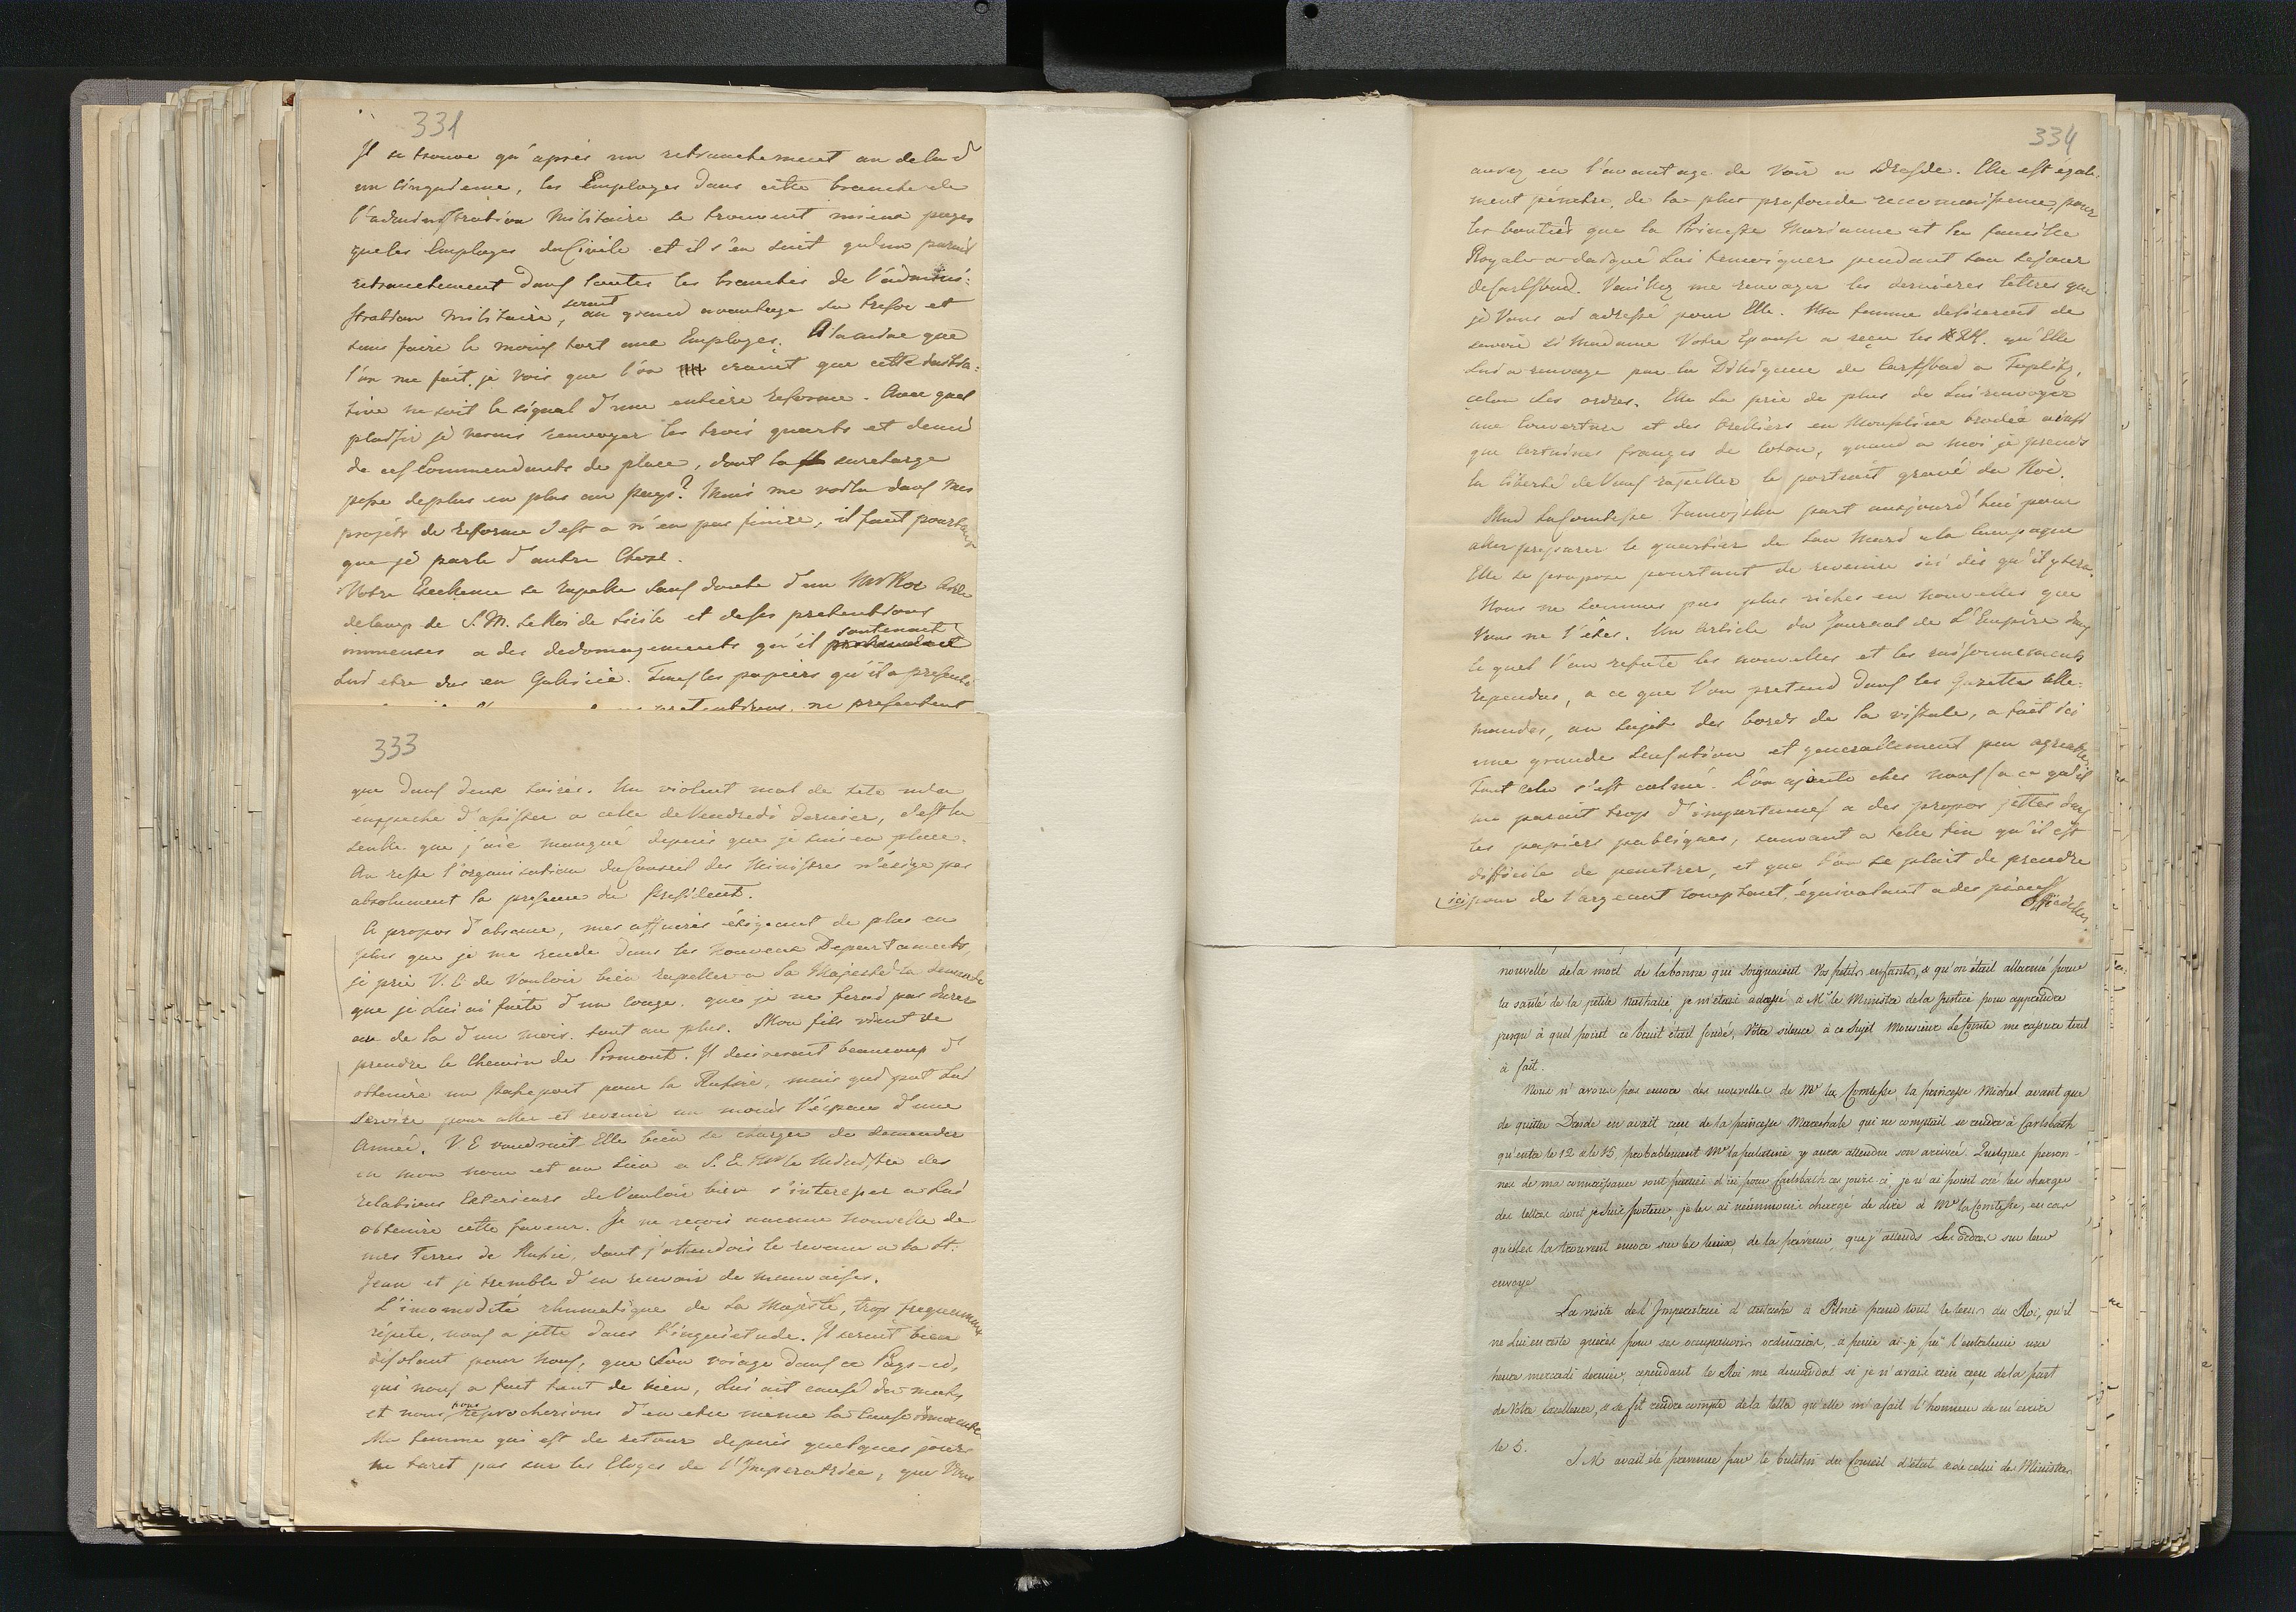 331
Il se trouve qu'après un retranchement au delà d'
un cinquieme, les Employes dans cette branche de
l'administration Militaire se trouvent mieux payes
que les Employes du Civile et il s'en suit qu'un pareil
retranchement dans toutes les branches de l'adminis-
stration Militaire, serait au grand avantage du tresor et
sans faire le moins tort aux Employes. A la mine que
l'on me fait, je vois que l'on craint que cette tentta-
tive ne soit le signal d'une entiere reforme. Avec quel
plaisir je verrais renvoyer les trois quarts et demi
de ces Commendants de place, dont la surcharge
pese deplus en plus au pays? Mais me voila dans mes
projets de reforme c'est a n'en pas finire, il faut pourtant
que je parle d'autre chose.
Votre Excellence se rapelle sans doute d'un Mr Aide
de camp de S. M. le Roi de Sicile et de ses pretentions
immenses a des dedomagements qu'il soutenait
Lui etre dus en Galicie. Tous les papiers qu'il a presenté
pretentions, ne presentent
333
que dans deux soirés. Un violent mal de tete m'a
emppeché d'assister a celle de Vendredi dernier, c'est la
seulle que j'aie manqué depuis que je suis en place.
Au reste l'organisation du Conseil des Ministres n'exige pas
absolument la presence du President.
A propos d'absence, mes affaires éxigeant de plus en
plus que je me rende dans les Nouveaux Departaments,
je prie V. E. de Vouloir bien rapeller a Sa Majesté la demande
que je Lui ai faite d'un conge. que je ne ferai pas durer
au de la d'un mois. tout au plus. Mon fils vient de
prendre le Chemin de Pirmont. Il desirerait beaucoup d'
obtenire un passeport pour la Russie, mais qui put Lui
servire pour aller et revenir au moins l'éspace d'une
Anneé. V. E voudrait-Elle bien se charger de demander
en mon nom et au sien a S. E. Mr le Ministre des
relations Exterieurs de Vouloir bien s'interesser a Lui
obtenire cette faveur. Je ne reçois aucune nouvelle de
mes Terres de Russie, dont j'attendois le revenu a la St.
Jean et je tremble d'en recevoir de mauvaises.
L'incomodité rhumatique de Sa Majesté, trop frequemment
répeté, nous a jetté dans l'inquietude. Il serait bien
désolant pour nous, que Son voiage dans ce Pays-ci,
qui nous a fait tant de bien, Lui ait causé du mal,
et nous nous reprocherions d'en etre meme la cause innocente
Ma femme qui est de retour depuis quelques jours
ne tarit pas sur les Eloges de l'Imperatrice, que Vous
334
aurez eu l'avantage de voir a Dresde. Elle est égale-
ment pénétré, de la plus profonde reconnaissance, pour
les bontées que la Princesse Marianne et la famille
Royale a daigné Lui temoigner pendant son sejour
de Carlsbad. Veuillez me renvoyer les dernieres lettres que
je Vous ai adressé pour Elle. Ma femme desirerait de
savoir si Madame Votre Epouse a reçu les qu'Elle
Lui a renvoyé par la Diligence de Carlsbad a Toplitz,
selon Ses ordres. Elle La prie de plus de Lui renvoyer
une Couverture et des Oreillers en Mousseline brodée ainsi
que certaines franges de coton, quand a moi je prends
la liberté de Vous rapeller le portrait gravé du Roi.
Mad La Comtesse Zamojska part aujourd'hui pour
aller preparer le quartier de son Mari a la Campagne
Elle se propose pourtant de revenire ici dès qu'il y sera.
Nous ne sommes pas plus riches en nouvelles que
Vous ne l'étes. Un Article du Journal de L'Empire dans
le quel l'on refute les nouvelles et les raisonnements
rependus, a ce que l'on pretend dans les Gazettes Alle-
mandes, au sujet des bords de la vistule, a fait ici
une grande sensation et generallement peu agreable
Tout cela s'est calmé. L'on ajoute chez nous (a ce qu'il
me parait trop d'importance) a des propos jettes dans
les papiers publiques, souvant a telle fin qu'il est
difficile de penetrer, et que l'on se plait de prendre
ici pour de l'argeant comptant, équivalant a des pieces
Officielles.
nouvelle dela mort de labonne qui soignaient Vos petits enfants, & qu'on était allarmé pour
la santé de la petite Nathalie je m'étais adressé à Mr le Ministre dela Justice pour apprendre
jusqu'à quel point ce bruit était fondé, Votre silence à ce sujet Monsieur le Comte me rassure tout
à fait.
Nous n'avons pas encore des nouvelles de Me la Comtesse, la princesse Michel avant que
de quitter Dresde en avait reçu de la princesse Marechale qui ne comptait se rendre à Carlsbath
qu'entre le 12 & le 15, probablement Me la palatine y aura attendue son arrivée. Quelques person-
nes de ma connaissance sont parties d'ici pour Carlsbath ces jours-ci, je n'ai point osé les charger
des lettres dont je suis porteur, je les ai néanmoins chargé de dire à Me la Comtesse, en cas
qu'elles la trouvent encore sur les lieux, de la prevenir, que j'attends Ses ordres sur leur
envoye
La visite del'Imperatrice d'autriche à Pilnic prend tout le tems du Roi, qu'il
ne lui en reste guères pour ses occupations ordinaires, à peine ai-je pu l'entretenir une
heure mercredi dernier, cependant le Roi me demandat si je n'avais rien reçu dela part
de Votre Excellence, & se fit rendre compte dela lettre qu'elle m'a fait l'honneur de m'ecrire
le 5.
S M avait été prevenue par le bulletin du Conseil d'état & de celui des Ministres